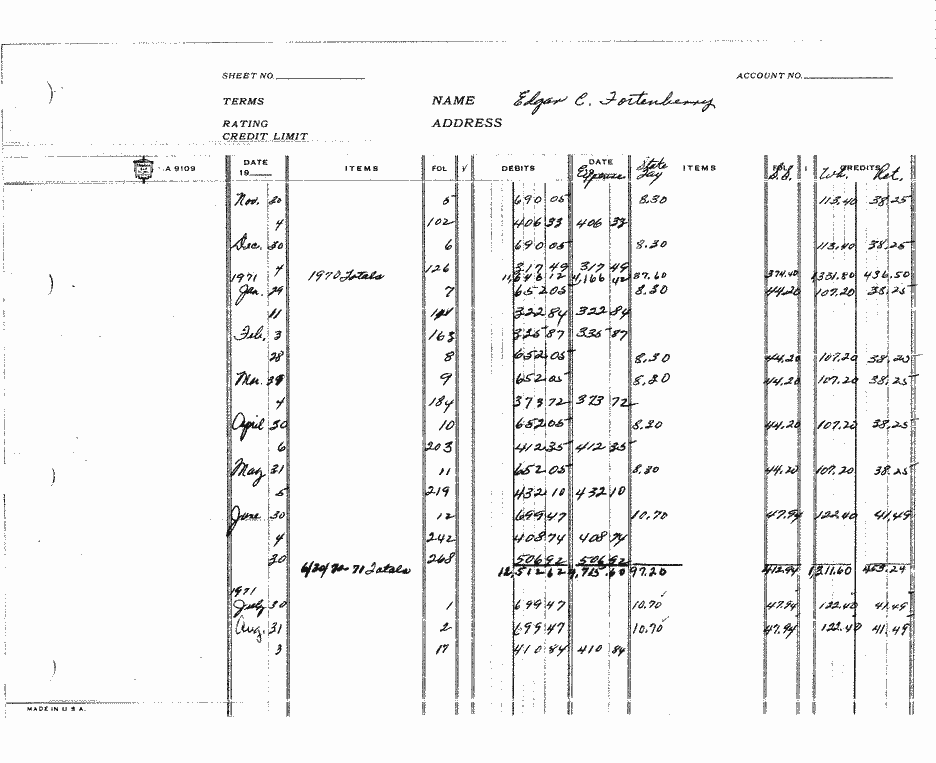 SHEET NO.
ACCOUNT NO.
TERMS NAME Edgar C. Fortenberry
RATING ADDRESS
CREDIT LIMIT
A 9109 DATE 19 ITEMS FOL √ DEBITS DATE Expense State Tax ITEMS FOL S.S. CREDITS Wh. Ret.
Nov. 30 5 690 05 8.30 113.40 38.25
4 102 406 33 406 33
Dec. 30 6 690 05 8.30 113.40 38.25
4 126 317 49 317 49
1971 1970 Totals 87.60 374.40 1331.80 436.50
Jan. 29 7 652 05 8.30 44.20 107.20 38.25
11 322 84 322 84
Feb. 3 163 335 87
28 8 652 05 8.30 44.20 107.20 38.25
Mar. 9 652 05 8.30 44.20 107.20 38.25
4 184 373 72 373 72
April 30 10 652 05 8.30 44.20 107.20 38.25
6 203 412 35 412 35
May 31 11 652 05 8.30 44.20 107.20 38.25
5 219 432 10 432 10
June 30 12 699 47 10.70 47.94 122.40 41.49
4 242 408 74 408 74
30 268 506 92 506 92
6/30/70-71 Totals 12,512 62 4,715 60 97.20 412.94 1311.60 453.24
1971
July 30 1 699 47 10.70 47.94 122.40 41.49
Aug. 31 2 699 47 10.70 47.94 122.40 41.49
3 17 410 84 410 84
MADE IN U S A.